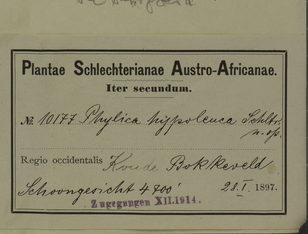 Plantae Schlechterianae Austro-Africanae.
Iter secundum.
№ 10177 Phylica hypoleuca Schltr.
n. sp.
Regio occidentalis Koude Bokkeveld
Schoongezicht 4700' 28. I. 1897.
Zugegangen XII.1914.